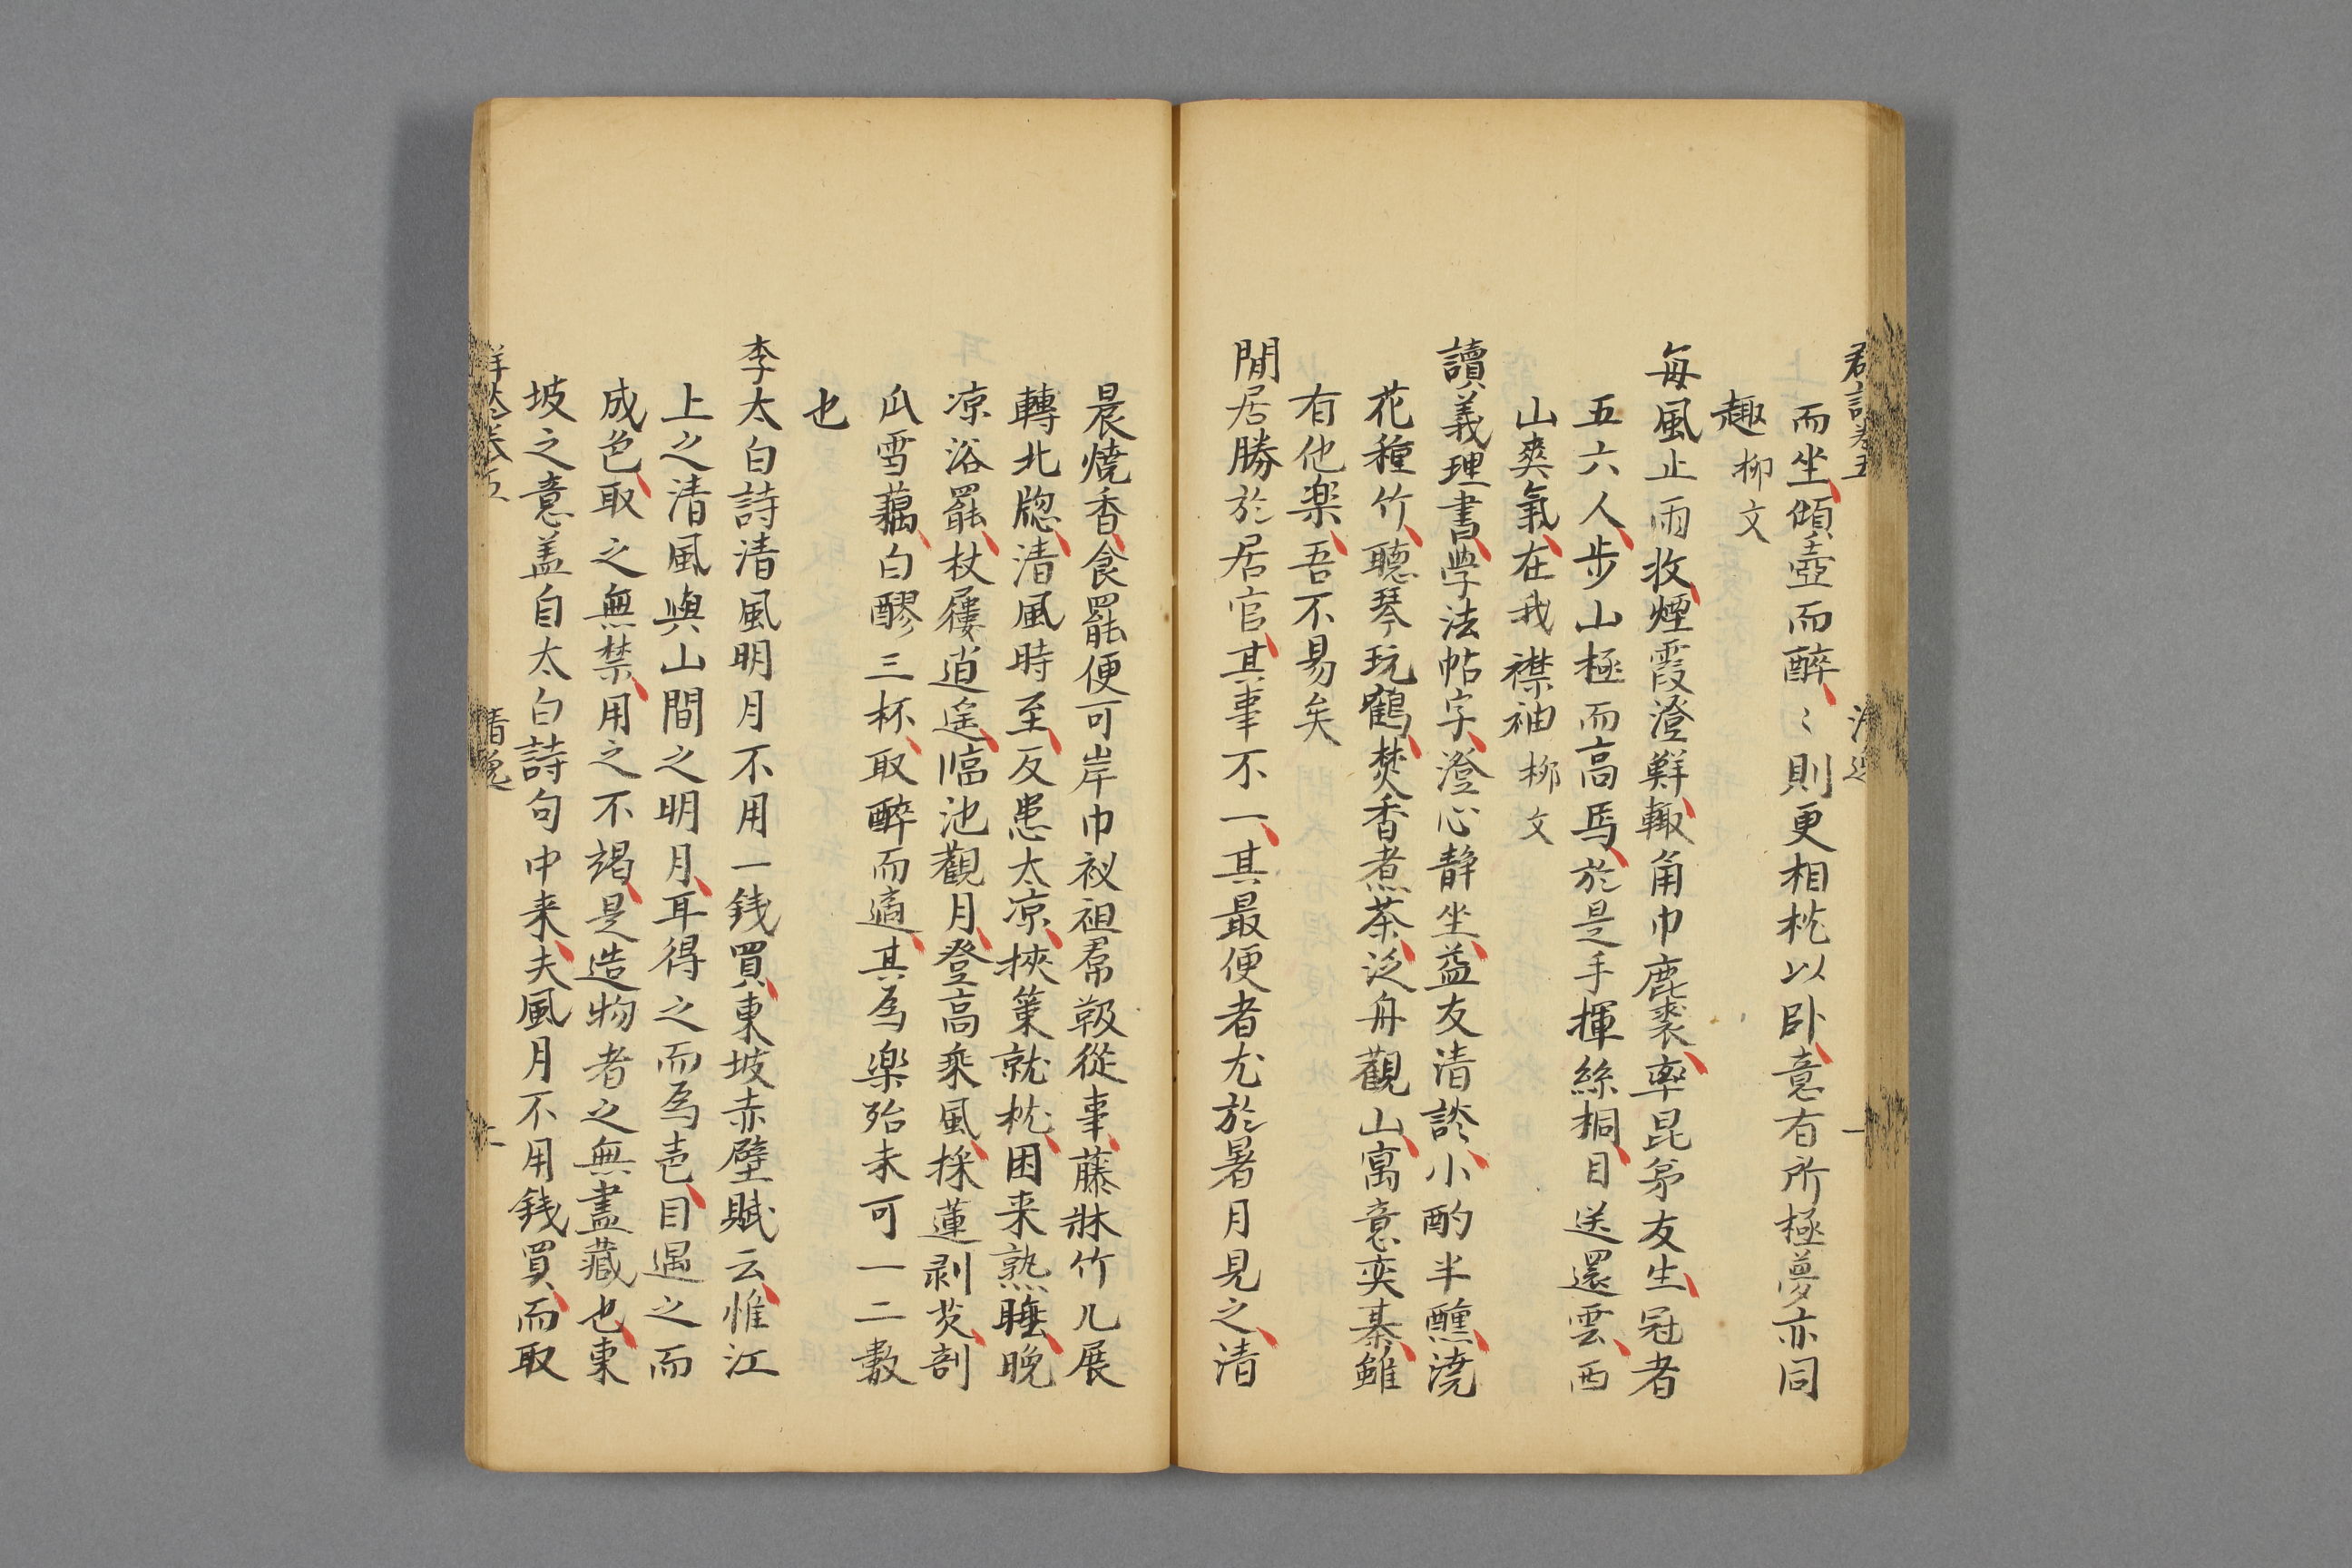 而坐傾壺而醉〻則更相枕以卧意有所極夢亦同
趣 柳文
每風止雨收煙霞澄鮮輙角巾鹿裘率昆弟友生冠者
五六人步山極而高焉於是手揮絲桐目送還雲西
山爽氣在我襟袖 柳文
讀義理書學法帖字澄心静坐益友清談小酌半醺澆
花種竹聽琴玩鶴焚香煮茶泛舟觀山寓意奕棊雖
有他楽吾不易矣
閒居勝於居官其事不一其最便者尤於暑月見之清
晨燒香食罷便可岸巾衩袒帬靸從事藤牀竹几展
轉北牕清風時至反患太凉挾篥就枕困来熟睡晚
凉浴罷杖屨逍遙臨池觀月登高乘風採蓮剥芡剖
瓜雪藕白醪三杯取醉而適其為楽殆未可一二數
也
李太白詩清風明月不用一錢買東坡赤壁賦云惟江
上之清風與山間之明月耳得之而為声目遇之而
成色取之無禁用之不竭是造物者之無盡藏也東
坡之意盖自太白詩句中来夫風月不用錢買而取